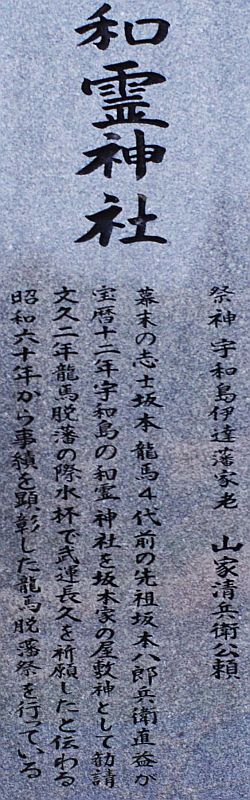 和霊神社
祭神 宇和島伊達藩家老 山家清兵衛公頼
幕末の志士坂本龍馬4代前の先祖坂本八郎兵衛直益が
宝暦十二年宇和島の和霊神社を坂本家の屋敷神として勧請
文久二年龍馬脱藩の際水杯で武運長久を祈願したと伝わる
昭和六十年から事績を顕彰した龍馬脱藩祭を行っている